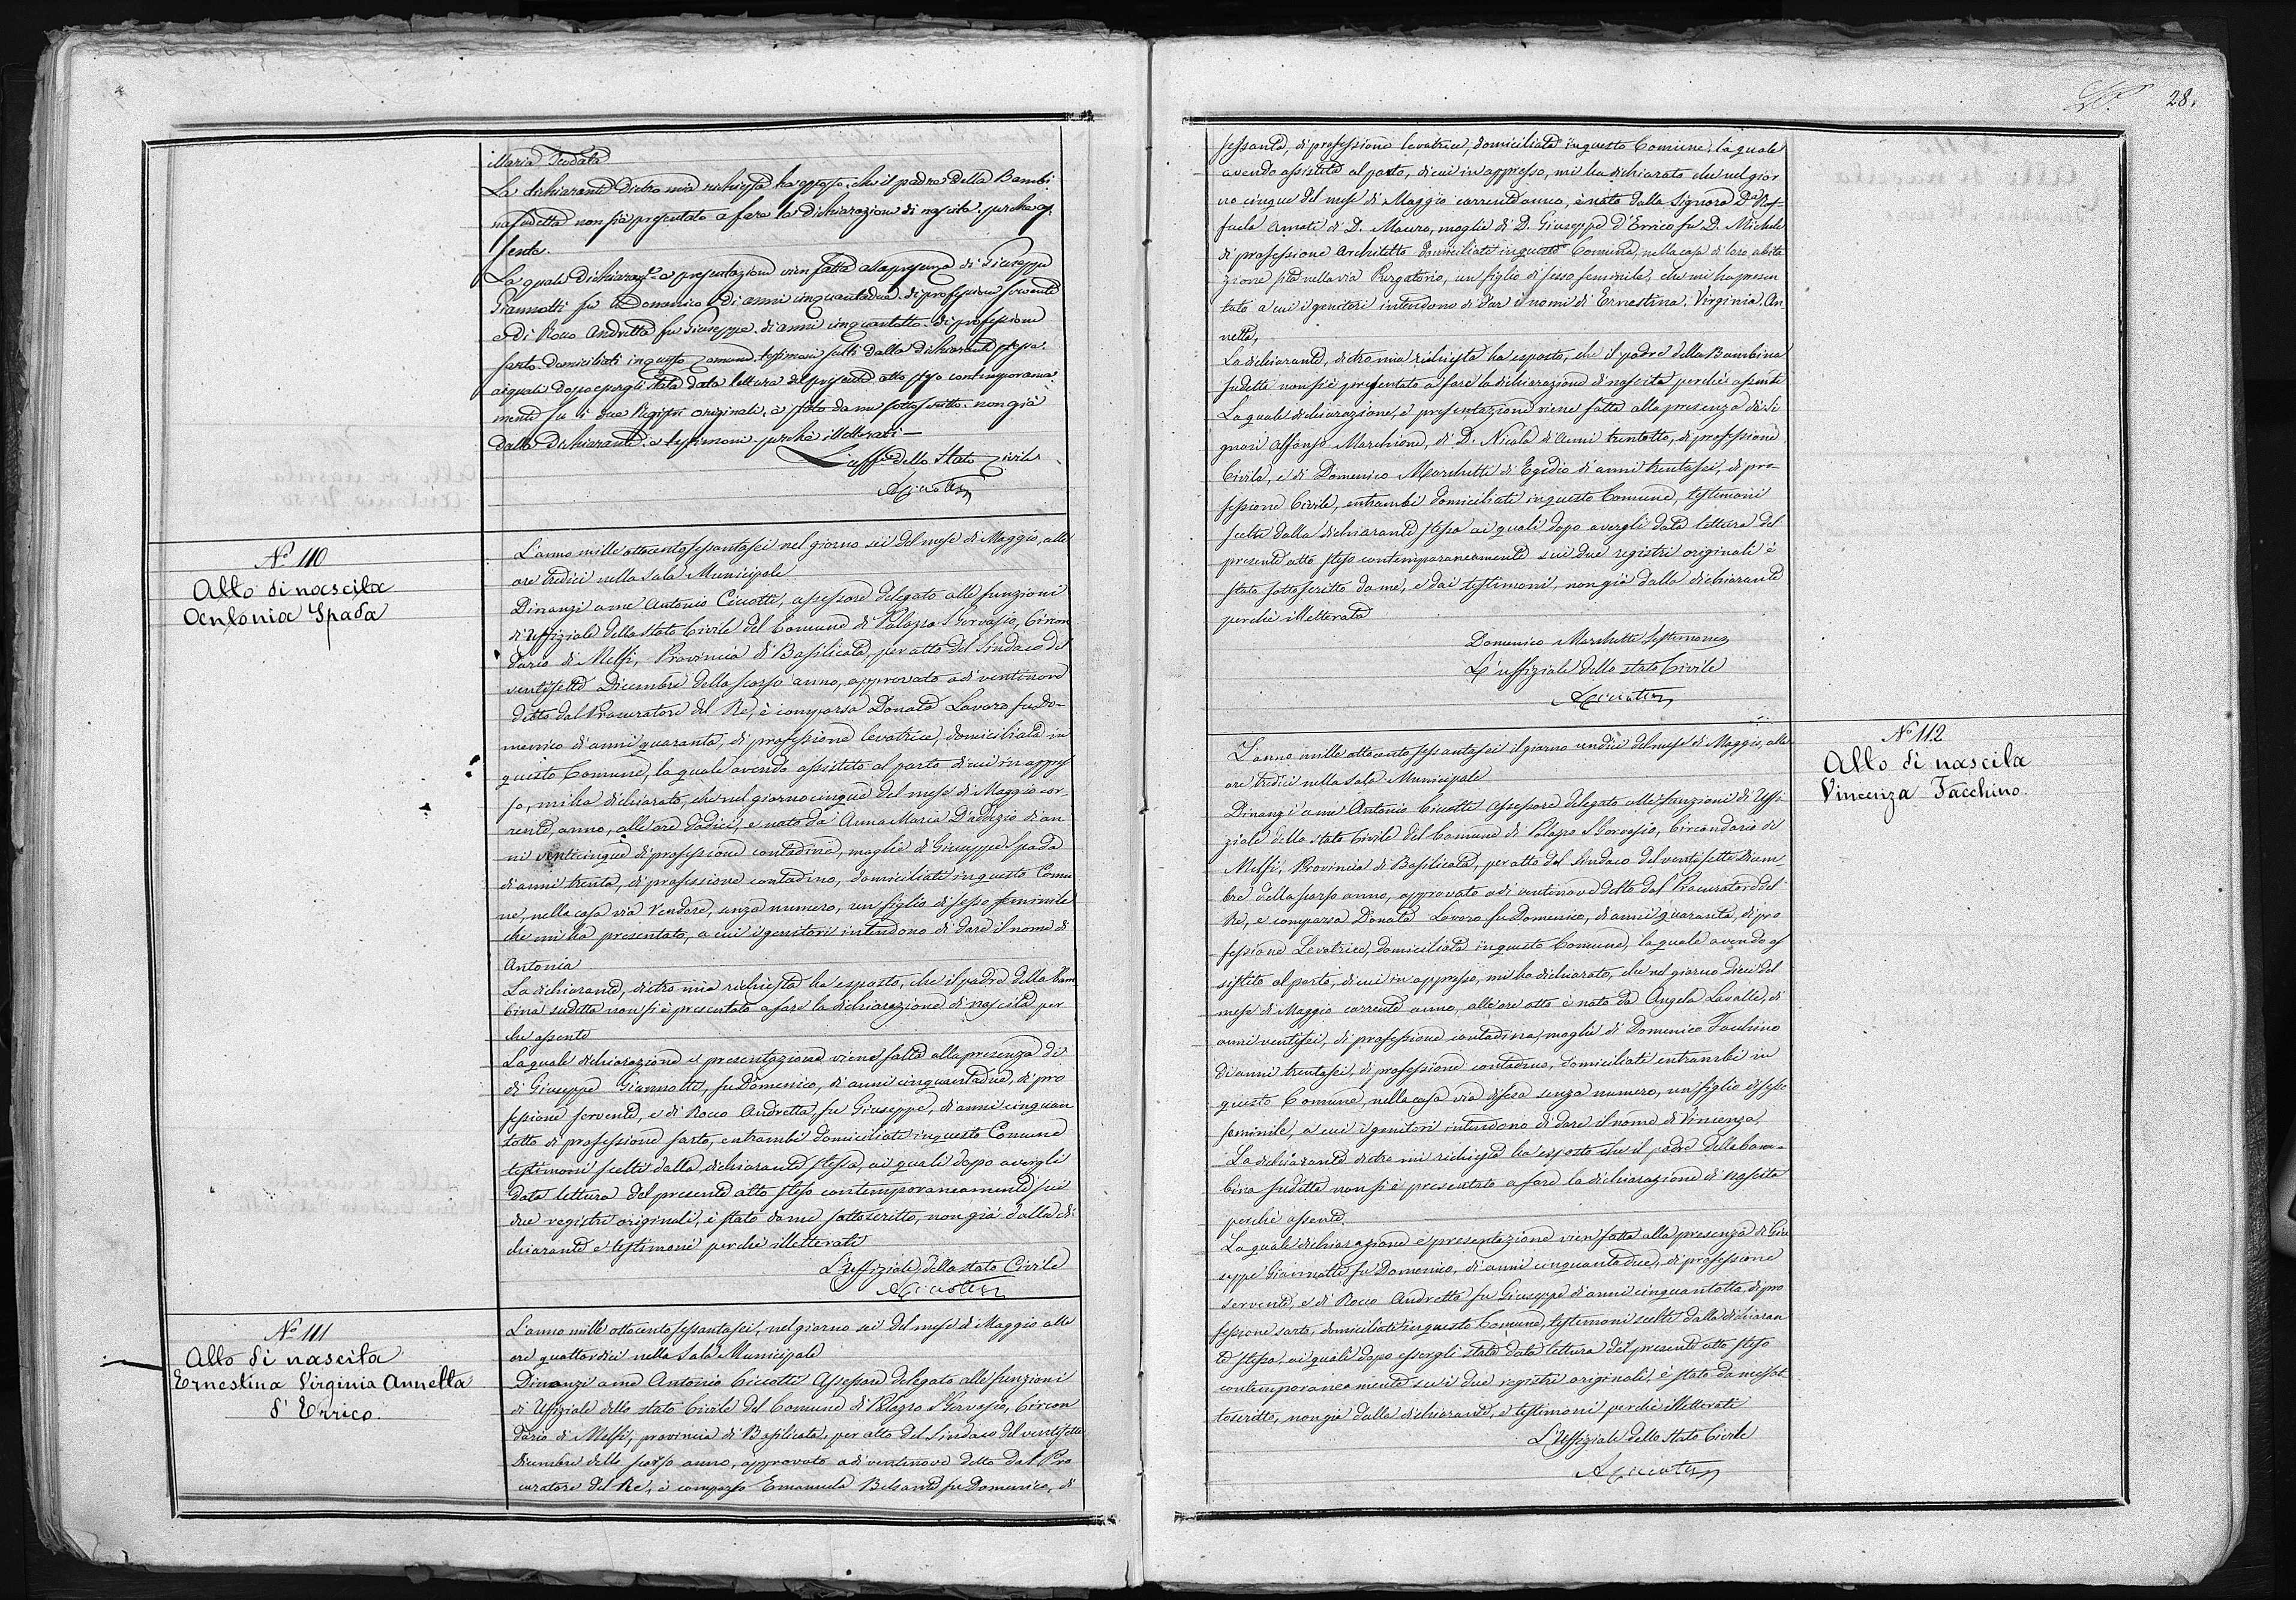 Maria Teodata
La dichiarante dietro mia richiesta ha esposto, che il padre della Bambi
na sudetta non si è presentato a fare la dichiarazione di nascita perche as
sente.
La quale dichiaraz.e e presentazione vien fatta alla presenza di Giuseppe
Giannotti fu Domenico di anni cinquantadue, di professione servente
e di Rocco Andretta fu Giuseppe, di anni cinquantotto di professione
sarto domiciliati in questo Comune, testimoni scelti dalla dichiarante stessa
ai quali dopo essergli stata data lettura del presente atto steso contemporanea
mente su i due Registri originali, è stato da me sottoscritto, non già
dalla Dichiarante e testimoni perchè illetterati —
L'uff.e dello Stato Civile
A Ciccotti
No 110
Atto di nascita
Antonia Spada
L'anno mille ottocentosessantasei nel giorno sei del mese di Maggio, alle
ore tredici nella sala Municipale
Dinanzi a me Antonio Ciccotti, assessore delegato alle funzioni
d'Uffiziale dello Stato Civile del Comune di Palazzo S Gervasio, Circon
dario di Melfi, Provincia di Basilicata, per atto del Sindaco del
ventisette Dicembre dello scorso anno, approvato adi ventinove
detto dal Procuratore del Re, è comparsa Donata Lavoro fu Do-
menico di anni quaranta, di professione levatrice, domiciliata in
questo Comune, la quale avendo assistito al parto di cui in appres
so, mi ha dichiarato, che nel giorno cinque del mese di Maggio cor-
rente anno, alle ore dodici, e nato da Anna Maria D'addezio di an
ni venticinque di professione contadina, moglie di Giuseppe Spada
di anni trenta, di professione contadino, domiciliati in questo Comu
ne, nella casa via Vendere, senza numero, un figlio di sesso feminile
che mi ha presentato, a cui i genitori intendono di dare il nome di
Antonia
La dichiarante, dietro mia richiesta ha esposto, che il padre della Bam
bina sudetta non si è presentato a fare la dichiarazione di nascita per
che assente
La quale dichiarazione e presentazione viene fatta alla presenza di
di Giuseppe Giannotti, fu Domenico, di anni cinquantadue, di pro
fessione servente, e di Rocco Andretta, fu Giuseppe, di anni cinquan
totto di professione sarto, entrambi domiciliati in questo Comune
testimoni scelti dalla dichiarante stessa, ai quali dopo avergli
data lettura del presente atto steso contemporaneamente sui
due registri originali, è stato da me sottoscritto, non già dalla di
chiarante e testimoni perchè illetterati
L'Uffiziale dello stato Civile
A Ciccotti
No 111
Atto di nascita
Ernestina Virginia Annetta
d'Errico.
L'anno mille ottocentosessantasei, nel giorno sei del mese di Maggio alle
ore quattordici nella Sala Municipale
Dinanzi a me Antonio Ciccotti Assessore delegato alle funzioni
di Uffiziale dello stato Civile del Comune di Palazzo S Gervasio, Circon
dario di Melfi, provincia di Basilicata, per atto del Sindaco del ventisette
Dicembre dello scorso anno, approvato adi ventinove detto dal Pro
curatore del Re, è comparsa Emanuela Belsante fu Domenico, di
28.
sessanta, di professione levatrice, domiciliata in questo Comune, la quale
avendo assistito al parto, di cui in appresso, mi ha dichiarato che nel gior
no cinque del mese di Maggio corrente anno, è nato dalla Signora Da Raf-
faela Amati di D. Mauro, moglie di D. Giuseppe d'Errico fu D. Michele
di professione Architetto domiciliati in questo Comune, nella casa di loro abita
zione sita nella via Purgatorio, un figlio di sesso feminile, che mi ha presen
tato a cui i genitori intendono di dar i nomi di Ernestina, Virginia, An
netta,
La dichiarante, dietro mia richiesta ha esposto, che il padre della Bambina
sudetta non si è presentato a fare la dichiarazione di nascita perchè assente
La quale dichiarazione, e presentazione viene fatta alla presenza de' Si
gnori Alfonso Marchione, di D. Nicola di anni trentotto, di professione
Civile, e di Domenico Marchetti di Egidio di anni trentasei, di pro-
fessione Civile, entrambi domiciliati in questo Comune, testimoni
scelti dalla dichiarante stessa ai quali dopo avergli data lettura del
presente atto steso contemporaneamente sui due registri originali è
stato sottoscritto da me, e dai testimoni, non già dalla dichiarante
perchè illetterata
Domenico Marchetti testimone
L'uffiziale dello stato Civile
A Ciccotti
No 112
Atto di nascita
Vincenza Facchino.
L'anno mille ottocento sessantasei il giorno undici del mese di Maggio, alle
ore tredici nella sala Municipale
Dinanzi a me Antonio Ciccotti Assessore delegato alle funzioni di Uffi
ziale dello stato Civile del Comune di Palazzo S Gervasio, Circondario di
Melfi, Provincia di Basilicata, per atto del Sindaco del ventisette Dicem-
bre dello scorso anno, approvato adi ventinove detto dal Procuratore del
Re, e comparsa Donata Lavoro fu Domenico, di anni quaranta, di pro
fessione Levatrice, domiciliata in questo Comune, la quale avendo as
sistito al parto, di cui in appresso, mi ha dichiarato, che nel giorno dieci del
mese di Maggio corrente anno, alle ore otto è nato da Angela Lavalle, di
anni ventisei, di professione contadina, moglie di Domenico Facchino
di anni trentasei, di professione contadino, domiciliati entrambi in
questo Comune, nella casa via difesa senza numero, un figlio di sesso
feminile, a cui i genitori intendono di dare il nome di Vincenza,
La dichiarante dietro mi richiesta ha esposto che il padre della bam-
bina sudetta non si è presentato a fare la dichiarazione di nascita
perchè assente.
La quale dichiarazione e presentazione vien fatta alla presenza di Giu
seppe Giannotti fu Domenico, di anni cinquantadue, di professione
servente, e di Rocco Andretta fu Giuseppe di anni cinquantotto, di pro
fessione sarto, domiciliati in questo Comune, testimoni scelti dalla dichiaran
te stessa, ai quali dopo essergli stata data lettura del presente atto steso
contemporaneamente sui due registri originali, è stato da me sot
toscritto, non già dalla dichiarante, e testimoni perchè illetterati
L'Uffiziale dello Stato Civile
A Ciccotti